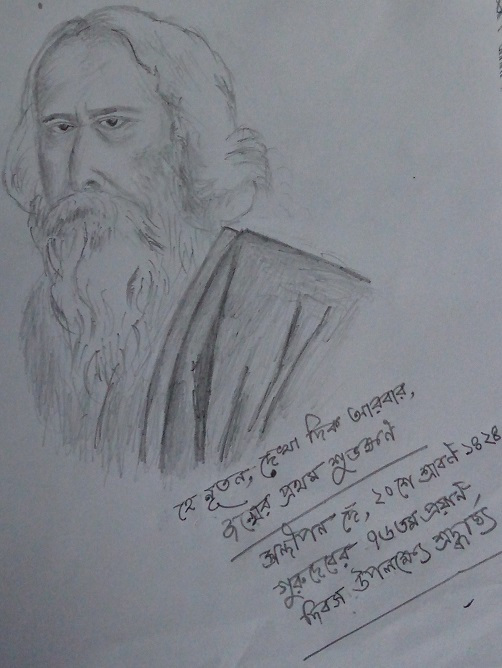 হে নূতন, দেখা দিক আরবার,
জন্মের প্রথম শুভক্ষণ
সন্দীপন দে, ২০শে শ্রাবণ ১৪২৪
গুরুদেবের ৭৬তম প্রয়াণ
দিবস উপলক্ষ্যে শ্রদ্ধার্ঘ্য